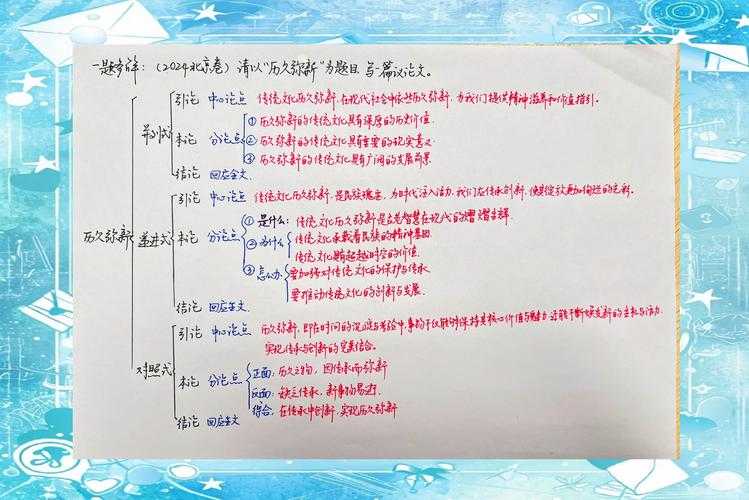 一题多解：（2024北京卷）请以“历久弥新”为题目，写一篇议论文。
历久弥新
并列式
引论 中心论点 传统文化历久弥新，在现代社会中依然历久弥新，为我们提供精神滋养和价值指引。
本论 分论点
① 历久弥新的传统文化具有深厚的历史价值.
② 历久弥新的传统文化具有重要的现实意义.
③ 历久弥新的传统文化具有广阔的发展前景
结论 回应全文
递进式
引论 中心论点 传统文化历久弥新，是民族瑰宝，为时代注入活力，我们应传承创新，使其绽放更加绚烂的光彩。
本论 分论点
① 是什么：传统文化历久弥新是古老智慧在现代的熠熠生辉.
② 为什么 传统文化承载着民族的精神基因.
传统文化拥有超越时空的价值.
③ 怎么办 要加强对传统文化的保护与传承
要推动传统文化的创新与发展.
结论 回应全文
对照式
引论 中心论点 历久弥新，即在时间的沉淀与考验中，事物不仅能够保持其核心价值与魅力，还能不断焕发新的生机与活力，
实现传承与创新的完美结合。
本论 分论点
正面：历久之物，因传承而弥新
反面：缺乏传承，新事物易逝.
综合：在传承中创新，实现历久弥新
结论 回应全文